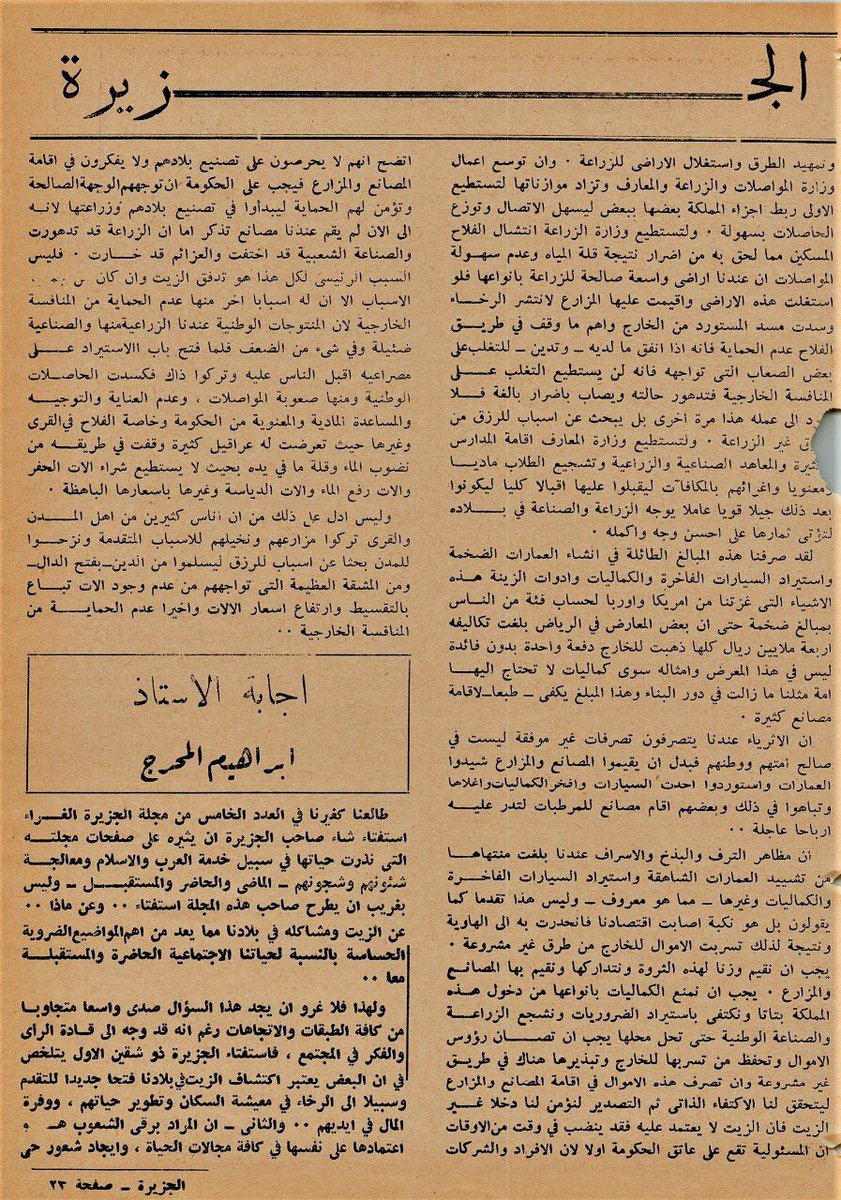 الجزيرة
وتمهيد الطرق واستغلال الاراضى للزراعة ٠ وان توسع اعمال
وزارة المواصلات والزراعة والمعارف وتزاد موازناتها لتستطيع
الاولى ربط اجزاء المملكة بعضها ببعض ليسهل الاتصال وتوزع
الحاصلات بسهولة ٠ ولتستطيع وزارة الزراعة انتشال الفلاح
المسكين مما لحق به من اضرار نتيجة قلة المياه وعدم سهولة
المواصلات ان عندنا اراضى واسعة صالحة للزراعة بانواعها فلو
استغلت هذه الاراضى واقيمت عليها المزارع لانتشر الرخاء
وسدت مسد المستورد من الخارج واهم ما وقف في طريق
الفلاح عدم الحماية فانه اذا انفق ما لديه ـ وتدين ـ للتغلب على
بعض الصعاب التى تواجهه فانه لن يستطيع التغلب على
المنافسة الخارجية فتدهور حالته ويصاب باضرار بالغة فلا
الى عمله هذا مرة اخرى بل يبحث عن اسباب للرزق من
غير الزراعة ٠ ولتستطيع وزارة المعارف اقامة المدارس
والمعاهد الصناعية والزراعية وتشجيع الطلاب ماديا
ومعنويا واغرائهم بالمكافآت ليقبلوا عليها اقبالا كليا ليكونوا
بعد ذلك جيلا قويا عاملا يوجه الزراعة والصناعة في بلاده
لتؤتى ثمارها على احسن وجه واكمله ٠
لقد صرفنا هذه المبالغ الطائلة في انشاء العمارات الضخمة
واستيراد السيارات الفاخرة والكماليات وادوات الزينة هذه
الاشياء التى غزتنا من امريكا واوربا لحساب فئة من الناس
بمبالغ ضخمة حتى ان بعض المعارض في الرياض بلغت تكاليفه
اربعة ملايين ريال كلها ذهبت للخارج دفعة واحدة بدون فائدة
ليس في هذا المعرض وامثاله سوى كماليات لا تحتاج اليها
امة مثلنا ما زالت في دور البناء وهذا المبلغ يكفى ـ طبعا ـ لاقامة
مصانع كثيرة ٠
ان الاثرياء عندنا يتصرفون تصرفات غير موفقة ليست في
صالح امتهم ووطنهم فبدل ان يقيموا المصانع والمزارع شيدوا
العمارات واستوردوا احدث السيارات وافخر الكماليات واغلاها
وتباهوا في ذلك وبعضهم اقام مصانع للمرطبات لتدر عليه
ارباحا عاجلة ٠٠
ان مظاهر الترف والبذخ والاسراف عندنا بلغت منتهاها
من تشييد العمارات الشاهقة واستيراد السيارات الفاخرة
والكماليات وغيرها ـ مما هو معروف ـ وليس هذا تقدما كما
يقولون بل هو نكبة اصابت اقتصادنا فانحدرت به الى الهاوية
ونتيجة لذلك تسربت الاموال للخارج من طرق غير مشروعة ٠
يجب ان نقيم وزنا لهذه الثروة ونتداركها ونقيم بها المصانع
والمزارع ٠ يجب ان نمنع الكماليات بانواعها من دخول هذه
المملكة بتاتا ونكتفى باستيراد الضروريات ونشجع الزراعة
والصناعة الوطنية حتى تحل محلها يجب ان تصان رؤوس
الاموال وتحفظ من تسربها للخارج وتبذيرها هناك في طريق
غير مشروعة وان تصرف هذه الاموال في اقامة المصانع والمزارع
ليتحقق لنا الاكتفاء الذاتى ثم التصدير لنؤمن لنا دخلا غير
الزيت فان الزيت لا يعتمد عليه فقد ينضب في وقت من الاوقات
ان المسئولية تقع على عاتق الحكومة اولا لان الافراد والشركات
اتضح انهم لا يحرصون على تصنيع بلادهم ولا يفكرون في اقامة
المصانع والمزارع فيجب على الحكومة ان توجههم الوجهة الصالحة
وتؤمن لهم الحماية ليبدأوا في تصنيع بلادهم وزراعتها لانه
الى الان لم يقم عندنا مصانع تذكر اما ان الزراعة قد تدهورت
والصناعة الشعبية قد اختفت والعزائم قد خارت ٠ فليس
السبب الرئيسى لكل هذا هو تدفق الزيت وان كان من
الاسباب الا ان له اسبابا اخر منها عدم الحماية من المنافسة
الخارجية لان المنتوجات الوطنية عندنا الزراعية منها والصناعية
ضئيلة وفي شىء من الضعف فلما فتح باب االاستيراد على
مصراعيه اقبل الناس عليه وتركوا ذاك فكسدت الحاصلات
الوطنية ومنها صعوبة المواصلات ، وعدم العناية والتوجيه
والمساعدة المادية والمعنوية من الحكومة وخاصة الفلاح في القرى
وغيرها حيث تعرضت له عراقيل كثيرة وقفت في طريقه من
نضوب الماء وقلة ما في يده بحيث لا يستطيع شراء الات الحفر
والات رفع الماء والات الدياسة وغيرها باسعارها الباهظة ٠
وليس ادل على ذلك من ان اناس كثيرين من اهل المدن
والقرى تركوا مزارعهم ونخيلهم للاسباب المتقدمة ونزحوا
للمدن بحثا عن اسباب للرزق ليسلموا من الدين ـ بفتح الدال ـ
ومن المشقة العظيمة التى تواجههم من عدم وجود الات تباع
بالتقسيط وارتفاع اسعار الالات واخيرا عدم الحماية من
المنافسة الخارجية ٠٠
اجابة الاستاذ
ابراهيم المحرج
طالعنا كغيرنا في العدد الخامس من مجلة الجزيرة الغراء
استفتاء شاء صاحب الجزيرة ان يثيره على صفحات مجلته
التى نذرت حياتها في سبيل خدمة العرب والاسلام ومعالجة
شئونهم وشجونهم ـ الماضى والحاضر والمستقبل ـ وليس
بغريب ان يطرح صاحب هذه المجلة استفتاء ٠٠ وعن ماذا ٠٠
عن الزيت ومشاكله في بلادنا مما يعد من اهم المواضيع الضروية
الحساسة بالنسبة لحياتنا الاجتماعية الحاضرة والمستقبلة
معا ٠٠
ولهذا فلا غرو ان يجد هذا السؤال صدى واسعا متجاوبا
من كافة الطبقات والاتجاهات رغم انه قد وجه الى قادة الرأى
والفكر في المجتمع ، فاستفتاء الجزيرة ذو شقين الاول يتلخص
في ان البعض يعتبر اكتشاف الزيت في بلادنا فتحا جديدا للتقدم
وسبيلا الى الرخاء في معيشة السكان وتطوير حياتهم ، ووفرة
المال في ايديهم ٠٠ والثانى ـ ان المراد برقى الشعوب هو
اعتمادها على نفسها في كافة مجالات الحياة ، وايجاد شعور حى
الجزيرة ـ صفحة ٢٣